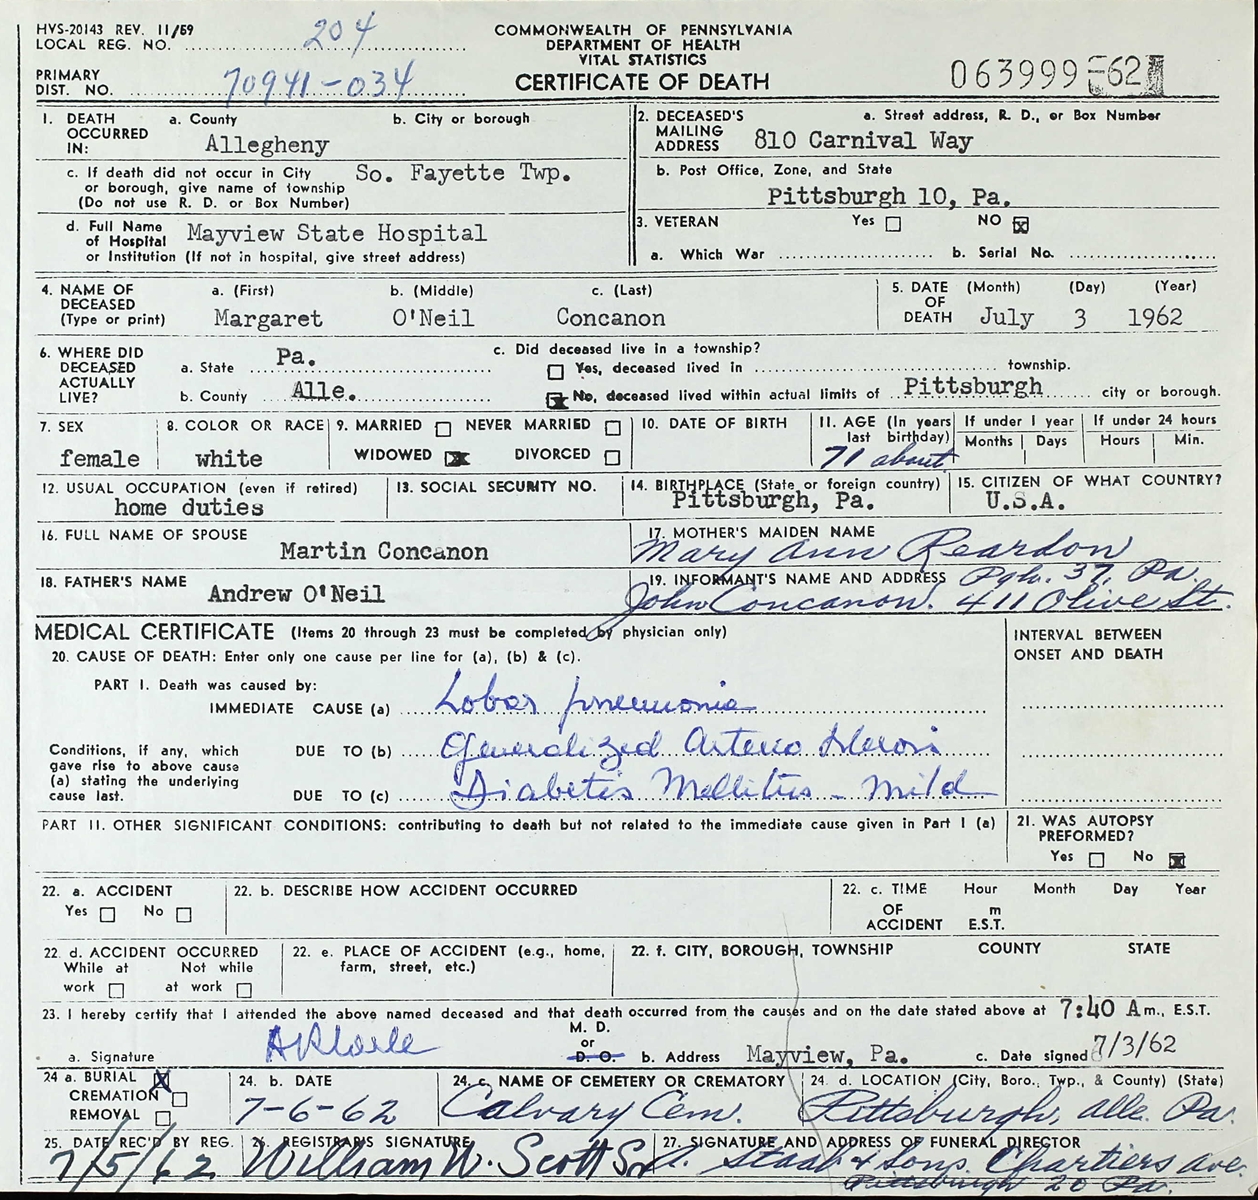 HVS-20143 REV. 11/59
LOCAL REG. NO. 204
PRIMARY
DIST. NO. 70941-034
COMMONWEALTH OF PENNSYLVANIA
DEPARTMENT OF HEALTH
VITAL STATISTICS
CERTIFICATE OF DEATH
063999-62
1. DEATH OCCURRED IN: a. County b. City or borough
Allegheny
c. If death did not occur in City or borough, give name of township (Do not use R. D. or Box Number)
So. Fayette Twp.
d. Full Name of Hospital or Institution (If not in hospital, give street address)
Mayview State Hospital
2. DECEASED'S MAILING ADDRESS a. Street address, R. D., or Box Number
810 Carnival Way
b. Post Office, Zone, and State
Pittsburgh 10, Pa.
3. VETERAN Yes NO
a. Which War b. Serial No.
4. NAME OF DECEASED (Type or print) a. (First) b. (Middle) c. (Last)
Margaret O'Neil Concanon
5. DATE OF DEATH (Month) (Day) (Year)
July 3 1962
6. WHERE DID DECEASED ACTUALLY LIVE?
a. State Pa.
b. County Alle.
c. Did deceased live in a township?
Yes, deceased lived in township.
No, deceased lived within actual limits of Pittsburgh city or borough.
7. SEX
female
8. COLOR OR RACE
white
9. MARRIED NEVER MARRIED
WIDOWED DIVORCED
10. DATE OF BIRTH
11. AGE (In years last birthday)
71 about
If under 1 year
Months Days
If under 24 hours
Hours Min.
12. USUAL OCCUPATION (even if retired)
home duties
13. SOCIAL SECURITY NO.
14. BIRTHPLACE (State or foreign country)
Pittsburgh, Pa.
15. CITIZEN OF WHAT COUNTRY?
U.S.A.
16. FULL NAME OF SPOUSE
Martin Concanon
17. MOTHER'S MAIDEN NAME
Mary Ann Reardon
18. FATHER'S NAME
Andrew O'Neil
19. INFORMANT'S NAME AND ADDRESS Pgh. 37, Pa.
John Concanon. 411 Olive St.
MEDICAL CERTIFICATE (Items 20 through 23 must be completed by physician only)
20. CAUSE OF DEATH: Enter only one cause per line for (a), (b) & (c).
INTERVAL BETWEEN
ONSET AND DEATH
PART I. Death was caused by:
IMMEDIATE CAUSE (a) Lobar pneumonia
Conditions, if any, which gave rise to above cause (a) stating the underlying cause last.
DUE TO (b) Generalized Arterio Sclerosis
DUE TO (c) Diabetis Mellitus - Mild
PART II. OTHER SIGNIFICANT CONDITIONS: contributing to death but not related to the immediate cause given in Part I (a)
21. WAS AUTOPSY
PREFORMED?
Yes No
22. a. ACCIDENT
Yes No
22. b. DESCRIBE HOW ACCIDENT OCCURRED
22. c. TIME OF ACCIDENT Hour Month Day Year
m
E.S.T.
22. d. ACCIDENT OCCURRED
While at work Not while at work
22. e. PLACE OF ACCIDENT (e.g., home, farm, street, etc.)
22. f. CITY, BOROUGH, TOWNSHIP COUNTY STATE
23. I hereby certify that I attended the above named deceased and that death occurred from the causes and on the date stated above at 7:40 A m., E.S.T.
M. D.
or
D. O.
a. Signature
b. Address Mayview, Pa. c. Date signed 7/3/62
24 a. BURIAL
CREMATION
REMOVAL
24. b. DATE
7-6-62
24. c. NAME OF CEMETERY OR CREMATORY
Calvary Cem.
24. d. LOCATION (City, Boro., Twp., & County) (State)
Pittsburgh, Alle. Pa.
25. DATE REC'D BY REG.
7/5/62
26. REGISTRAR'S SIGNATURE
William W. Scott Sr
27. SIGNATURE AND ADDRESS OF FUNERAL DIRECTOR
A. Staab & Sons. Chartiers Ave.
Pittsburgh 20 Pa.